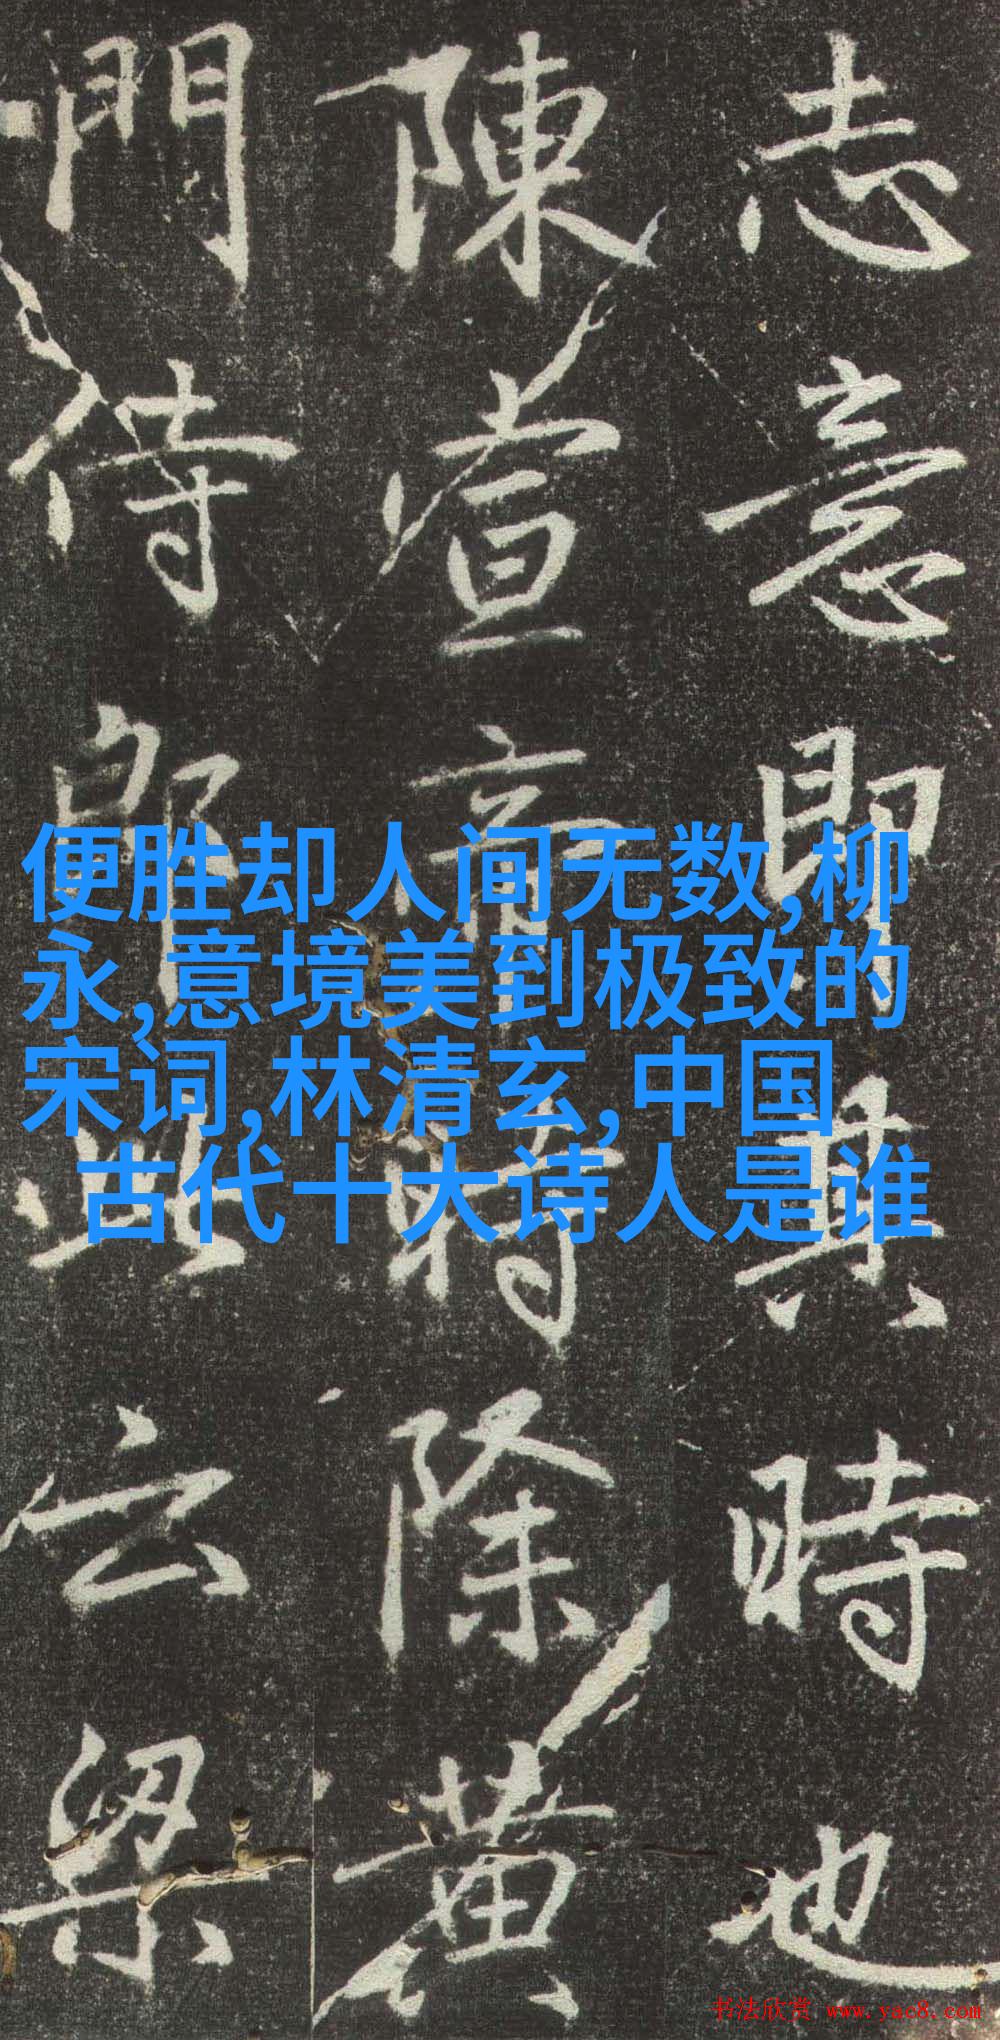 志意即其時也
陳宣帝時除黄
門侍郎此云梁
便胜却人间无数,柳
永,意境美到极致的
宋词,林清玄,中国
古代十大诗人是谁
书法欣赏 www.yac8.com